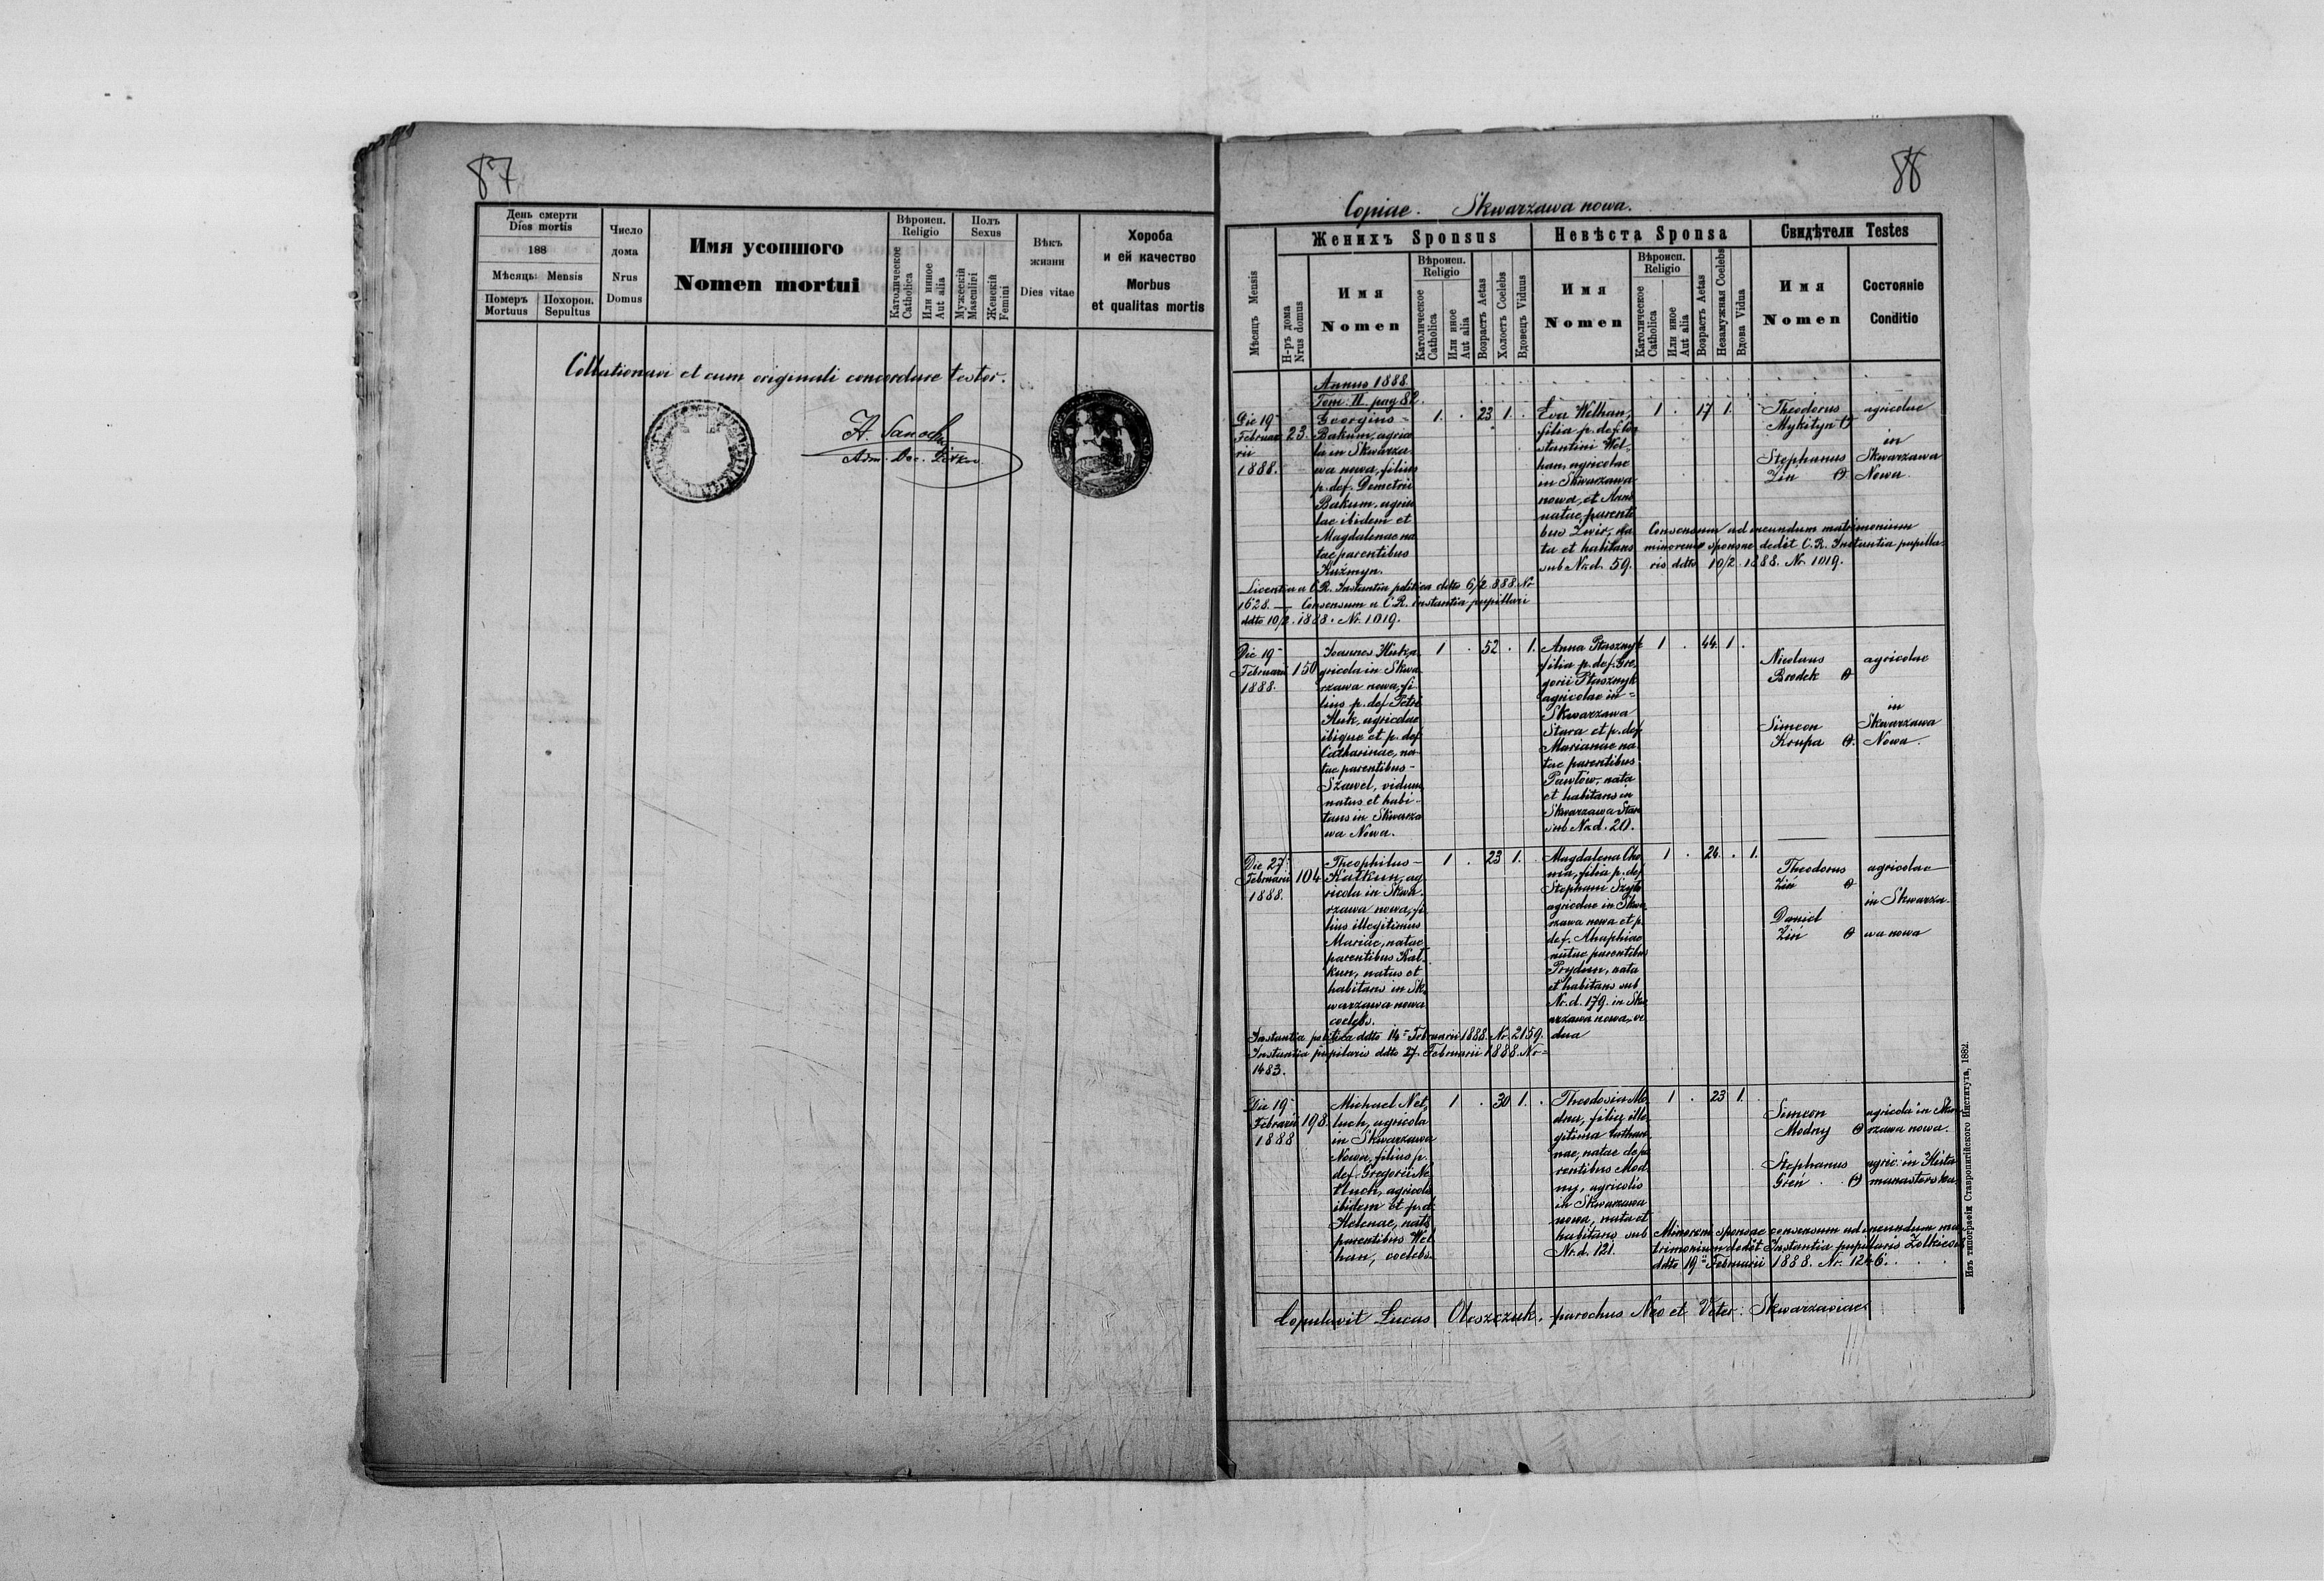 87
День смерти
Dies mortis
188
Мѣсяць Mensis
Померъ
Mortuus
Похорон.
Sepultus
Число
дома
Nrus
Domus
Имя усопшого
Nomen mortui
Вѣроисп.
Religio
Католическое
Catholica
Или инное
Aut alia
Полъ
Sexus
Мужескій
Masculini
Женскій
Femini
Вѣкъ
жизни
Dies vitae
Хороба
и ей качество
Morbus
et qualitas mortis
Collationavi et cum originali concordare testor.
88
Copiae. Skwarzawa nowa.
Женихъ Sponsus
Невѣста Sponsa
Свидѣтели Testes
Мѣсяць Mensis
Н-ръ дома
Nrus domus
Имя
Nomen
Вѣроисп.
Religio
Католическое
Catholica
Или иное
Aut alia
Возрастъ Aetas
Холостъ Coelebs
Вдовецъ Viduus
Имя
Nomen
Вѣроисп.
Religio
Католическое
Catholica
Или иное
Aut alia
Возрастъ Aetas
Незамужная Coelebs
Вдова Vidua
Имя
Nomen
Состояніе
Conditio
Annus 1888.
Tom. II pag 82.
Die 19
Februa
rii
1888.
23.
Georgius
Bakum, agrico
la in Skwarza
wa nowa, filius
p. def. Demetrii
Bakum, agrico
lae ibidem et
Magdalenae na
tae parentibus
Kuźmyn.
1. . 23 1. .
Eva Welhan,
filia p. def. Con
stantini Wel-
han, agricolae
in Skwarzawa
nowa, et Annae
natae parenti
bus Zwir, na
ta et habitans
sub Nr. d. 59.
1 . 17 1.
Theodorus
Mykityn
Stephanus
Zin
agricolae
in
Skwarzawa
Nowa.
Consensum ad ineundum matrimonium
minorenni sponsae dedit C. R. Instantia pupilla-
ris ddto 10/2 1888. Nr. 1019.
Licentia a C. R. Instantia politica ddto 6/2 888. Nr
1628. — Consensum a C. R. instantia pupillari
ddto 10/2. 1888. Nr. 1019.
Die 19
Februarii
1888.
150
Joannes Huk, a
gricola in Skwa
rzawa nowa, fi
lius p. def. Petri
Huk, agricolae
ibique et p. def.
Catharinae, na-
tae parentibus
Szawel, viduus,
natus et habi-
tans in Skwarza
wa Nowa.
1 . 52 . 1.
Anna Ptasznyk
filia p. def. Gre
gorii Ptasznyk
agricolae in
Skwarzawa
Stara et p. def.
Marianae na
tae parentibus
Pawłów, nata
et habitans in
Skwarzawa Stara
sub Nr. d. 20.
1 . 44 1 .
Nicolaus
Brodek
Simeon
Krupa
agricolae
in
Skwarzawa
Nowa.
Die 27
Februarii
1888.
104
Theophilus
Kałkun, ag
ricola in Skwa
rzawa nowa, fi
lius illegitimus
Mariae, natae
parentibus Kał
kun, natus et
habitans in Sk
warzawa nowa
coelebs.
1 . 23 1. .
Magdalena Cho
ma, filia p. def
Stephani
agricolae in Skwa
rzawa nowa et p.
def. Ahaphiae
natae parentibus
Prydun, nata
et habitans sub
Nr. d. 179. in Skw
arzawa nowa, vi
dua
1 . 24 . 1.
Theodorus
Ziń
Daniel
Ziń
agricolae
in Skwarza
wa nowa
Instantia politica ddto 14 Februarii 1888. Nr. 2159.
Instantia pupilaris ddto 27 Februarii 1888. Nr
1483.
Die 19
Februarii
1888
198.
Michael Net
luch, agricola
in Skwarzawa
Nowa, filius p.
def. Gregorii Ne
tluch, agricola
ibidem et p. d.
Helenae, natae
parentibus Wel
han, coelebs.
1 . 30 1. .
Theodosia Mo
dna, filia ille
gitima
nae, natae de pa
rentibus Mod
ny, agricolis
in Skwarzawa
nowa, nata et
habitans sub
Nr. d. 121.
1 . 23 1.
Simeon
Modny
Stephanus
Greń
agricola in Skwa
rzawa nowa.
agric. in Hirta
manasterska
Minorenni sponsae consensum ad ineundum ma
trimonium dedit Instantia pupillaris
ddto 19 Februarii 1888. Nr. 1246.
Copulavit Lucas Oleszczuk, parochus Neo et Veter: Skwarzaviae.
Изъ типографіи Ставропигійского Института, 1882.